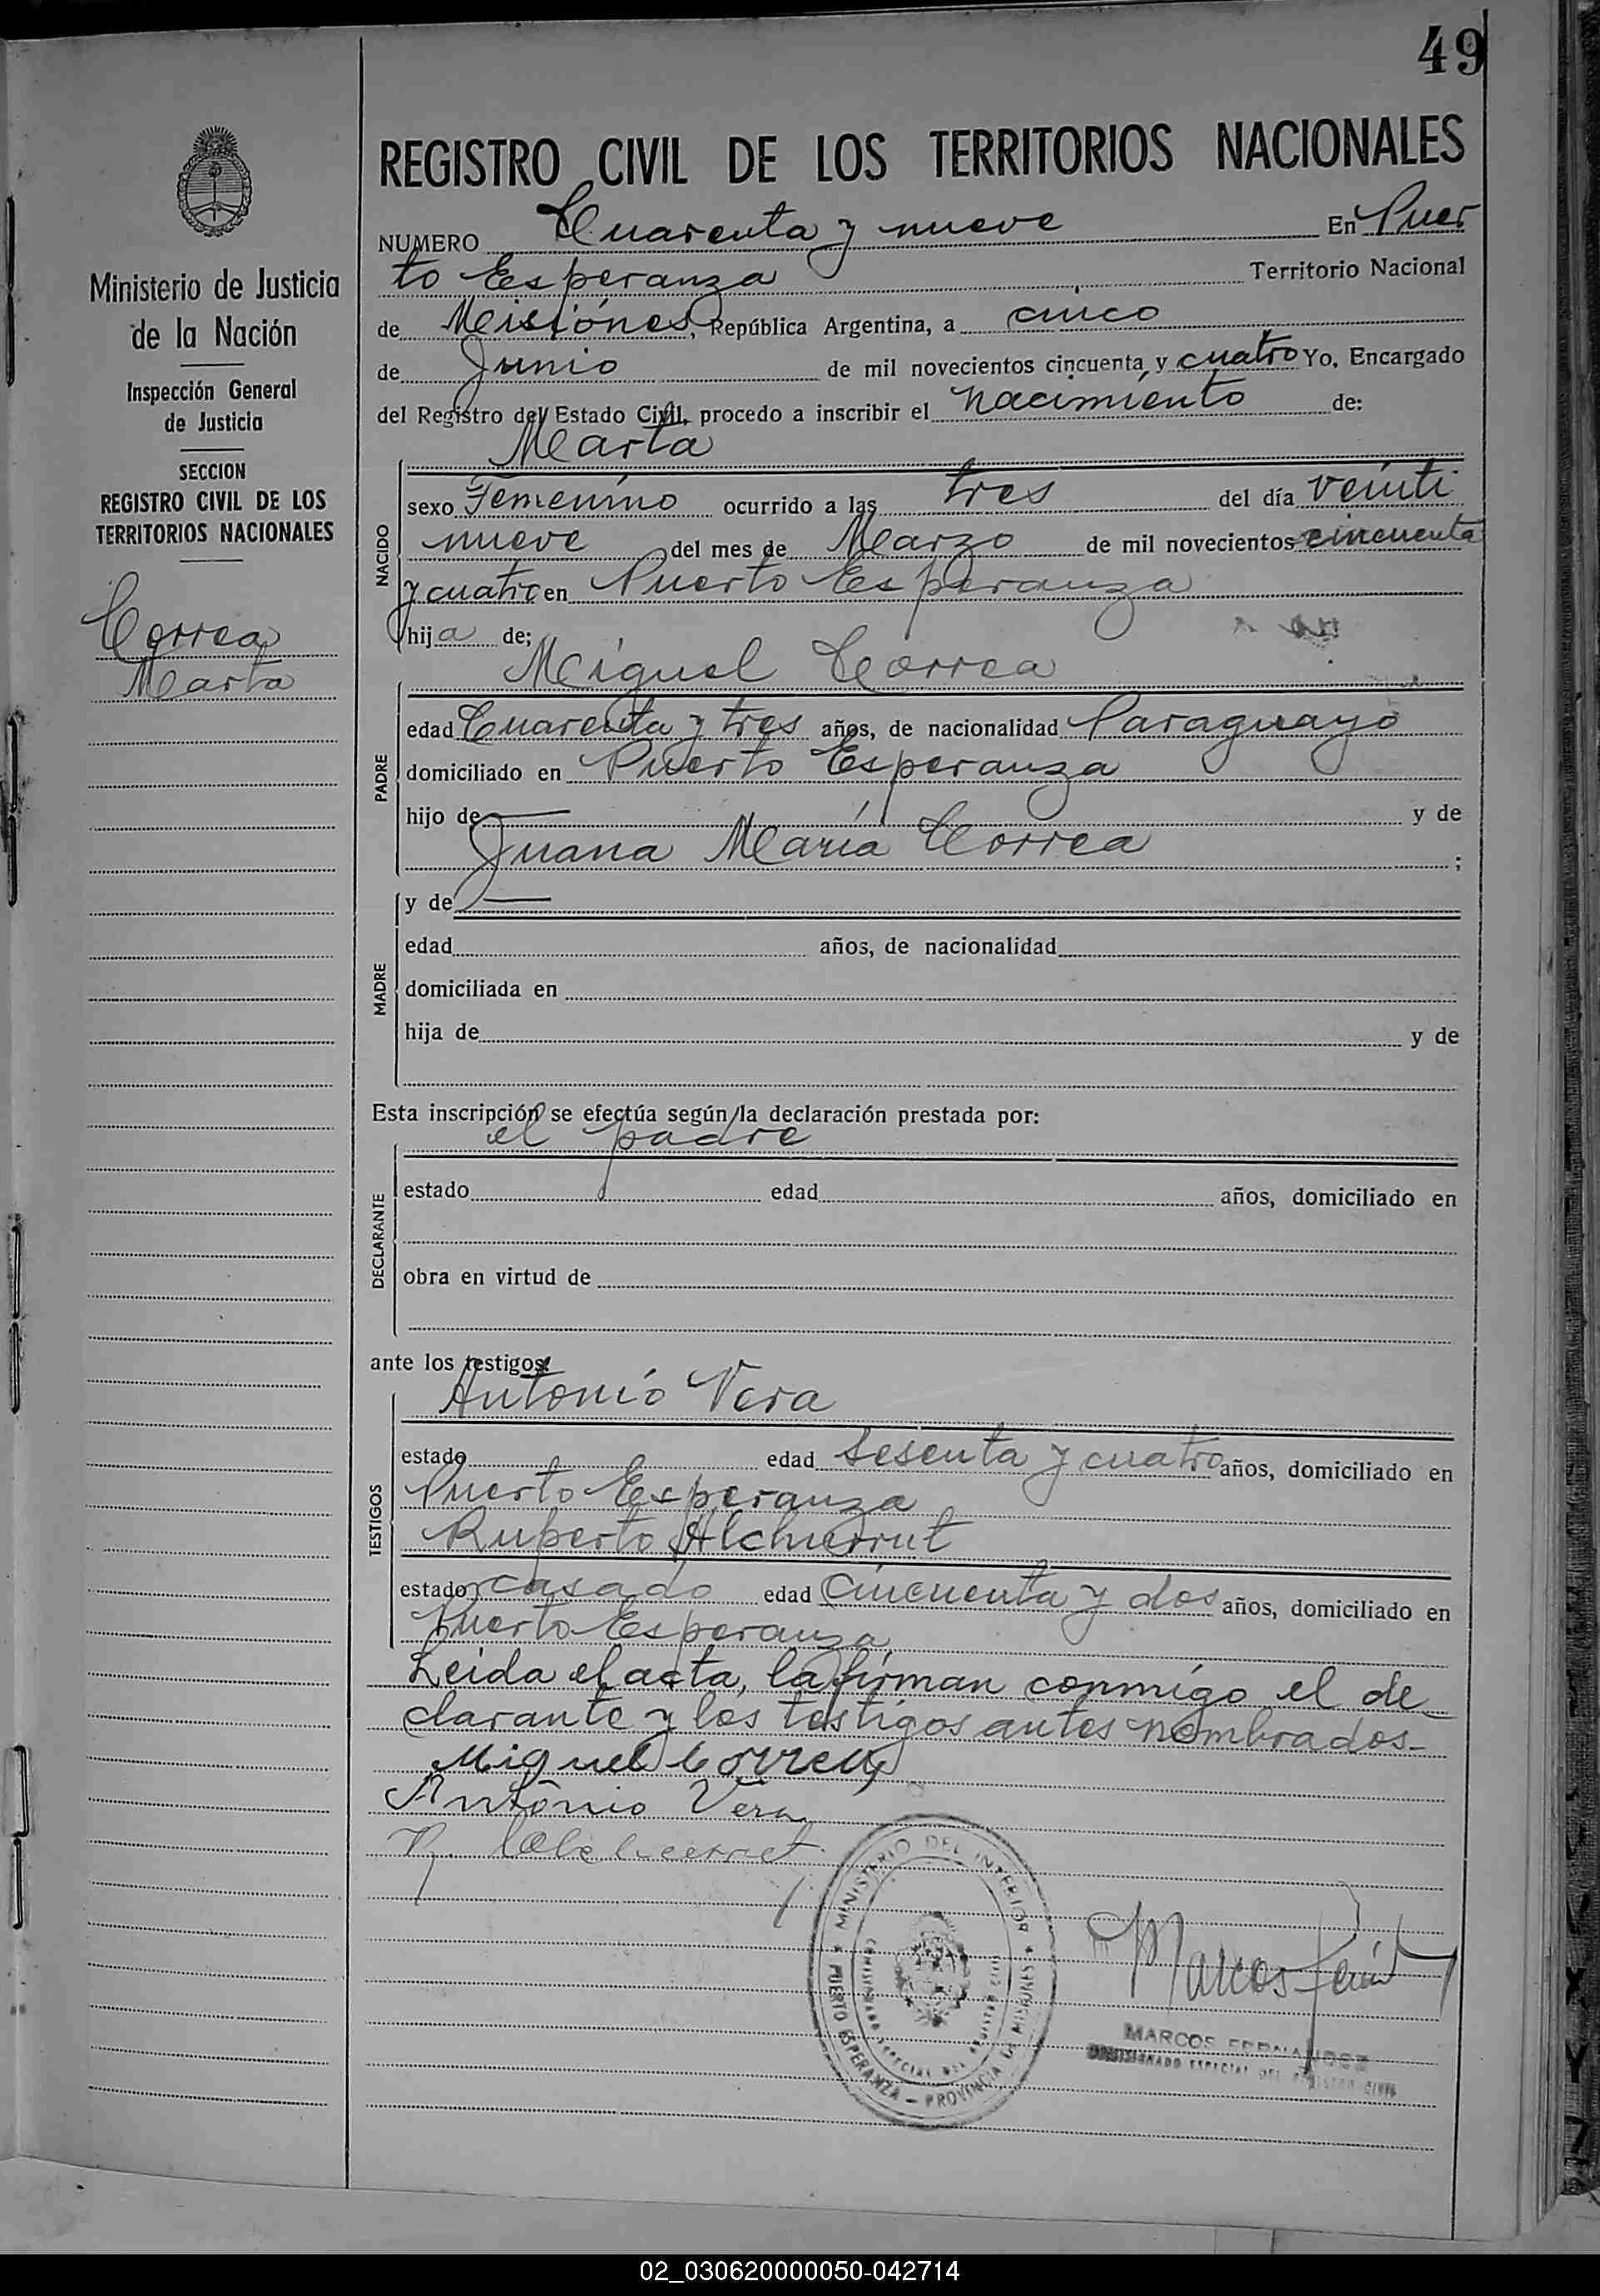 49
REGISTRO CIVIL DE LOS TERRITORIOS NACIONALES
NUMERO Cuarenta y nueve En Puer
to Esperanza Territorio Nacional
de Misiónes, República Argentina, a cinco
de Junio de mil novecientos cincuenta y cuatro Yo, Encargado
del Registro del Estado Civil, procedo a inscribir el nacimiento de:
Marta
NACIDO
sexo Femenino ocurrido a las tres del día veinti
nueve del mes de Marzo de mil novecientos cincuenta
y cuatro en Puerto Esperanza
hija de;
Miguel Correa
PADRE
edad Cuarenta y tres años, de nacionalidad Paraguayo
domiciliado en Puerto Esperanza
hijo de — y de
Juana María Correa ;
MADRE
y de —
edad años, de nacionalidad
domiciliada en
hija de y de
Esta inscripción se efectúa según la declaración prestada por:
el padre
DECLARANTE
estado edad años, domiciliado en
obra en virtud de
ante los testigos:
Antonio Vera
TESTIGOS
estado edad sesenta y cuatro años, domiciliado en
Puerto Esperanza
Ruperto
estado casado edad cincuenta y dos años, domiciliado en
Puerto Esperanza
Leida el acta, la firman conmigo el de
clarante y los testigos antes nombrados-
Miguel Correa
Antonio Vera
R.
MINISTERIO DEL INTERIOR
PUERTO ESPERANZA - PROVINCIA DE MISIONES
COMISIONADO ESPECIAL DEL REGISTRO CIVIL
MARCOS FERNANDEZ
COMISIONADO ESPECIAL DEL REGISTRO CIVIL
Ministerio de Justicia
de la Nación
Inspección General
de Justicia
SECCION
REGISTRO CIVIL DE LOS
TERRITORIOS NACIONALES
Correa
Marta
02_030620000050-042714